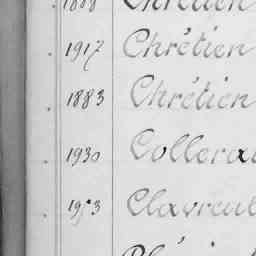 1888 Chrétien
1917 Chrétien
1883 Chrétien
1930 Collerai
1913 Clavreul